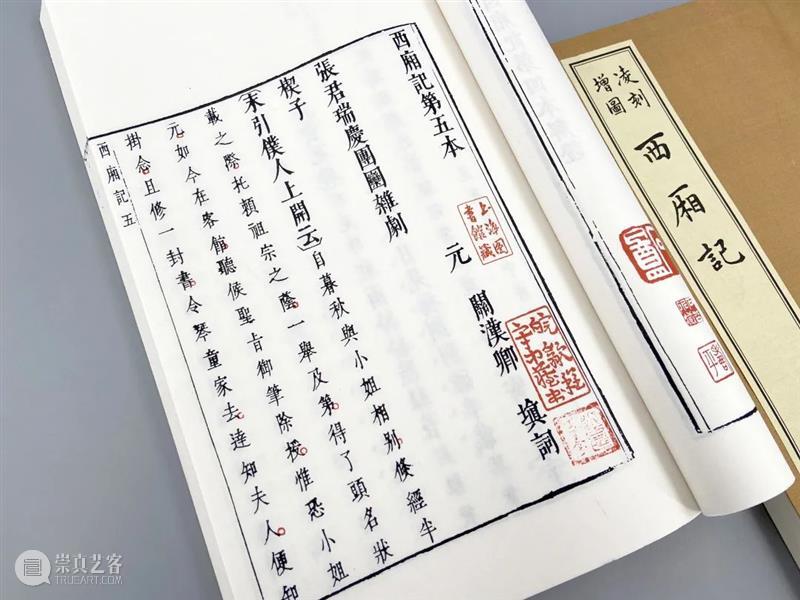 西廂記第五本
元 關漢卿 填詞
張君瑞慶團圞雜劇
楔子
(末引僕人上開云)自暮秋與小姐相別倐經半
載之際托賴祖宗之蔭一舉及第得了頭名狀
元如今在客館聽候聖旨御筆除授惟恐小姐
掛念且修一封書令琴童家去達知夫人便知
西廂記五
上海圖書館藏
凌刻
增圖
西廂記
崇真艺客
TRUEART.COM